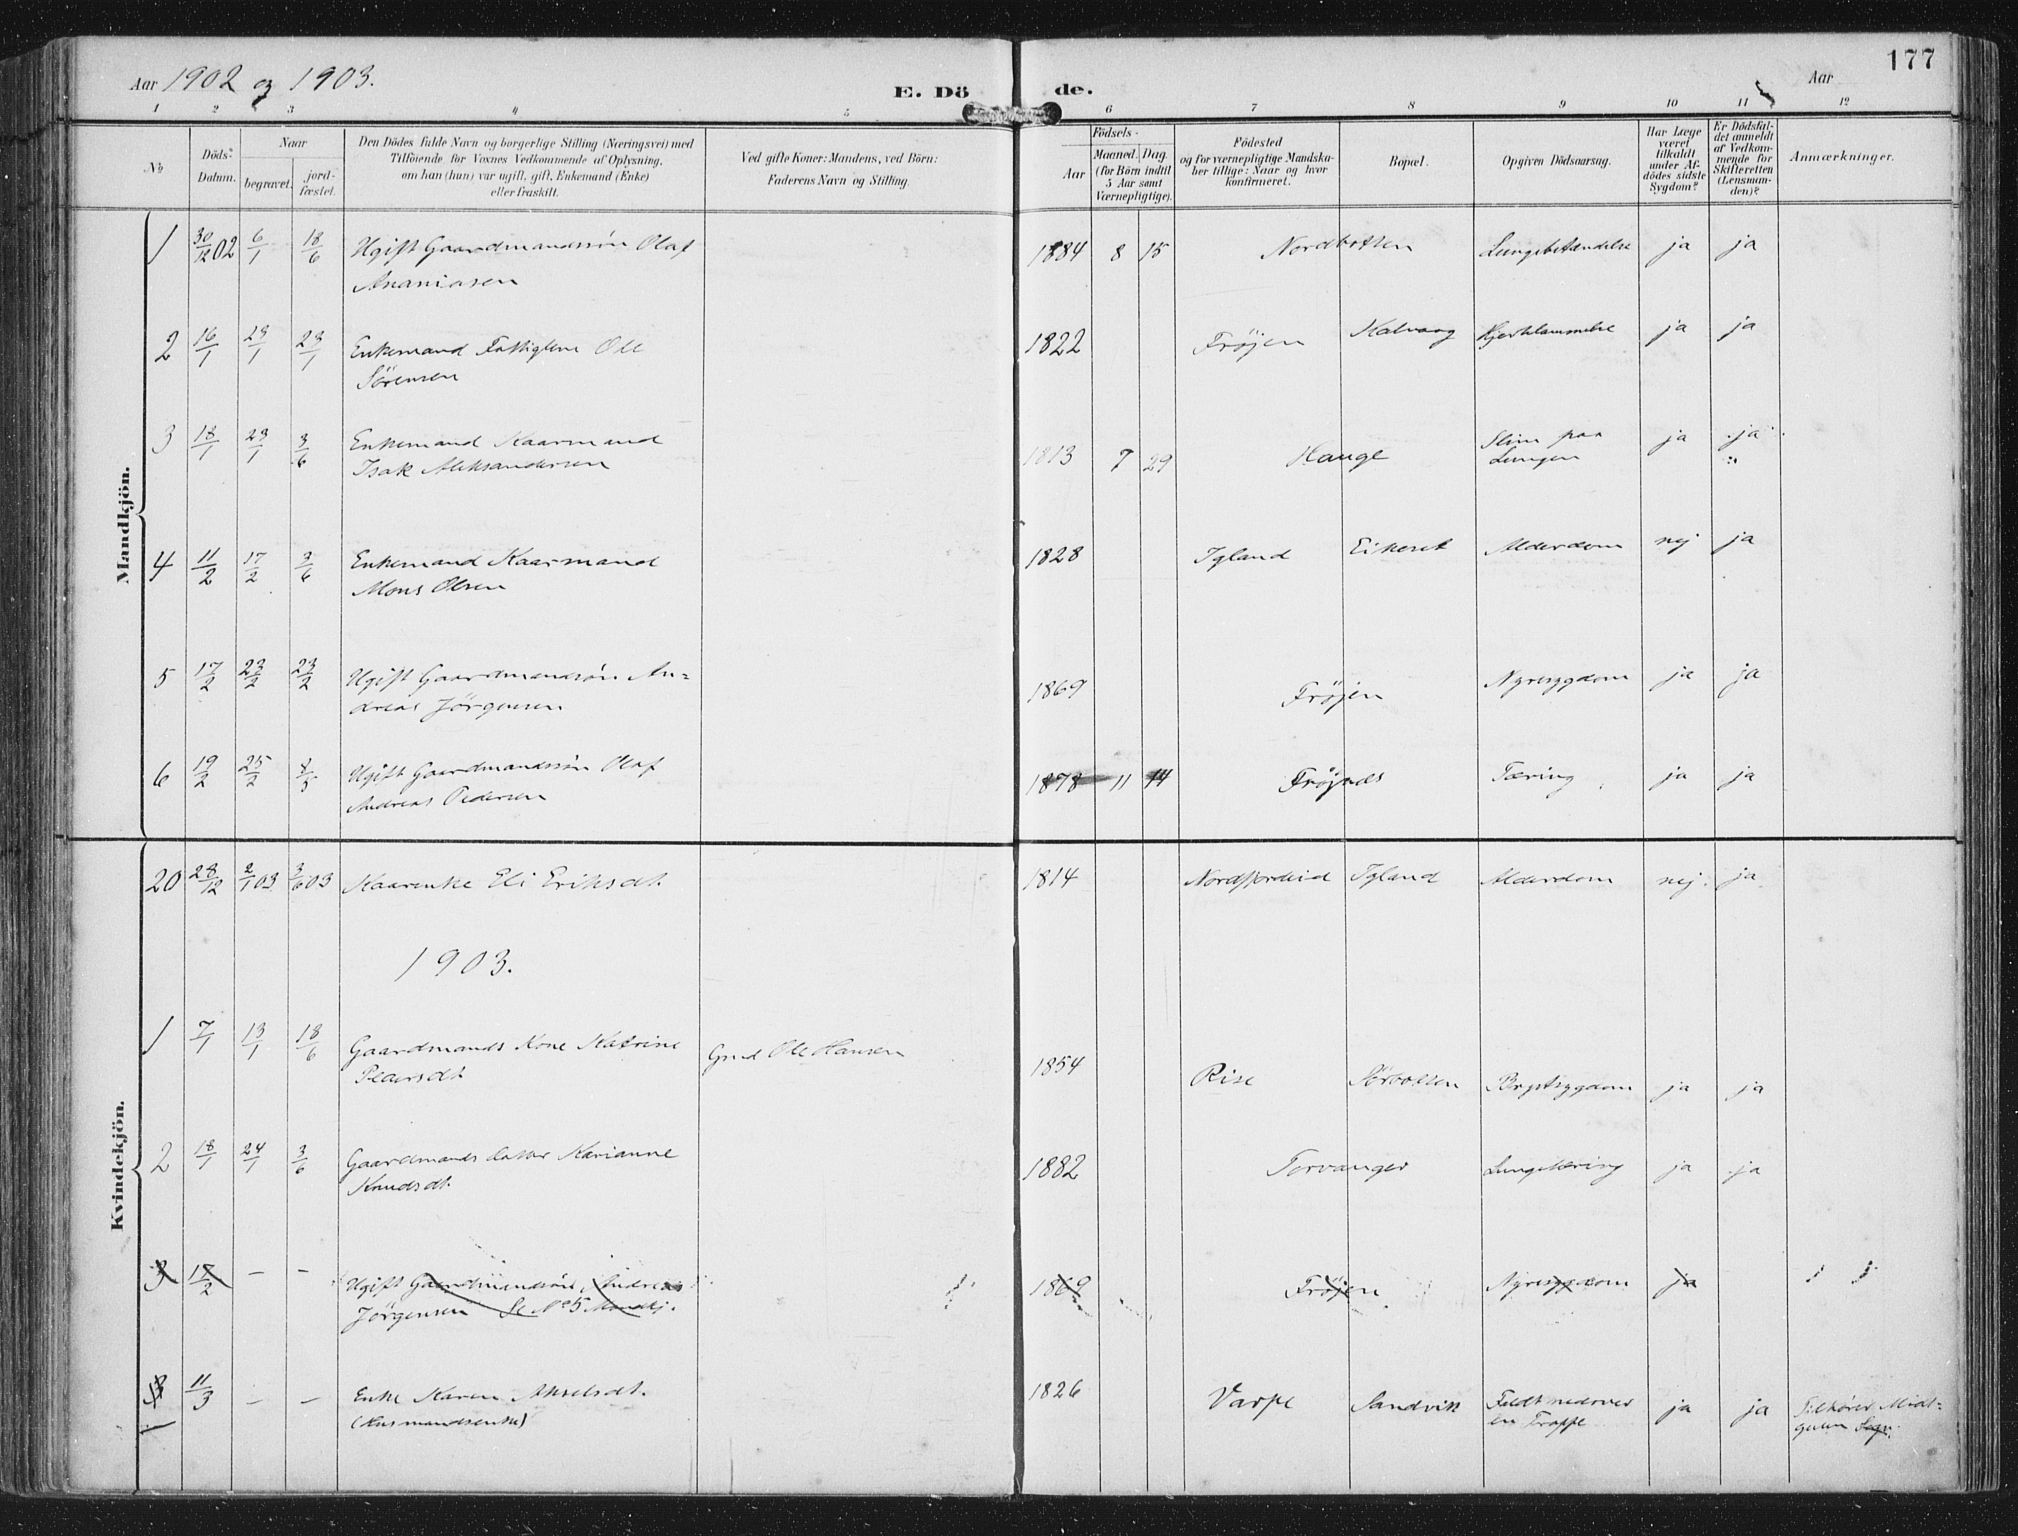 Aar 1902 og 1903. E. Dö de. Aar 177
1 2 3 4 5 6 7 8 9 10 11 12
No
Döds-
Datum.
Naar
begravet.
jord-
fæstet.
Den Dödes fulde Navn og borgerlige Stilling (Næringsvei) med
Tilföiende for Voxnes Vedkommende af Oplysning,
om han (hun) var ugift, gift, Enkemand (Enke)
eller fraskilt.
Ved gifte Koner: Mandens, ved Börn:
Faderens Navn og Stilling.
Födsels-
Aar
Maaned. Dag.
(for Börn indtil
5 Aar samt
Værnepligtige).
Födested
og for værnepligtige Mandska-
ber tillige: Naar og hvor
konfirmeret.
Bopæl.
Opgiven Dödsaarsag.
Har Læge
været
tilkaldt
under Af-
dödes sidste
Sygdom?
Er Dödsfal-
det anmeldt
af Vedkom-
mende for
Skifteretten
(Lensman-
den)?
Anmærkninger.
Mandkjön.
1 30/12 02 6/1 18/6 Ugift Gaardmandssön Olaf 1884 8 15 Nordbotten Lungebetændelse ja ja
Ananiasen
2 16/1 23/1 23/1 Enkemand Fattiglem Ole 1822 Fröjen Kalvaag Hjertelammelse ja ja
Sörensen
3 18/1 23/1 3/6 Enkemand Kaarmand 1813 7 29 Hauge Slim paa ja ja
Isak Aleksandersen Lungen
4 11/2 17/2 3/6 Enkemand Kaarmand 1828 Igland Eikeset Alderdom nej ja
Mons Olsen
5 17/2 23/2 23/2 Ugift Gaardmandssön An= 1869 Fröjen Nyresygdom ja ja
dreas Jörgensen
6 19/2 25/2 Ugift Gaardmandssön Olaf 1878 11 14 Fröjnes Tæring ja ja
Andreas Pedersen
Kvindekjön.
20 28/12 2/1 03 3/6 03 Kaarenke Eli Eriksdt. 1814 Nordfjordeid Igland Alderdom nej. ja
1903.
1 7/1 13/1 18/6 Gaardmands Kone Katrine Gmd Ole Hansen 1854 Rise Sörbotten Brystsygdom ja ja
Pedersdt.
2 18/1 24/1 3/6 Gaardmands datter Karianne 1882 Torvanger Lungetæring ja ja
Knudsdt.
3 17/2 – – Ugift Gaardmandssön Andreas 1869 Fröjen Nyresygdom ja
Jörgensen Se No 5 Mandkj.
11/3 – – Enke Karen Akselsdt. 1826 Varpe Sandvik Faldt nedover ja ja Tilhörer Midt=
(Husmandsenke) en Trappe gulen Sogn.